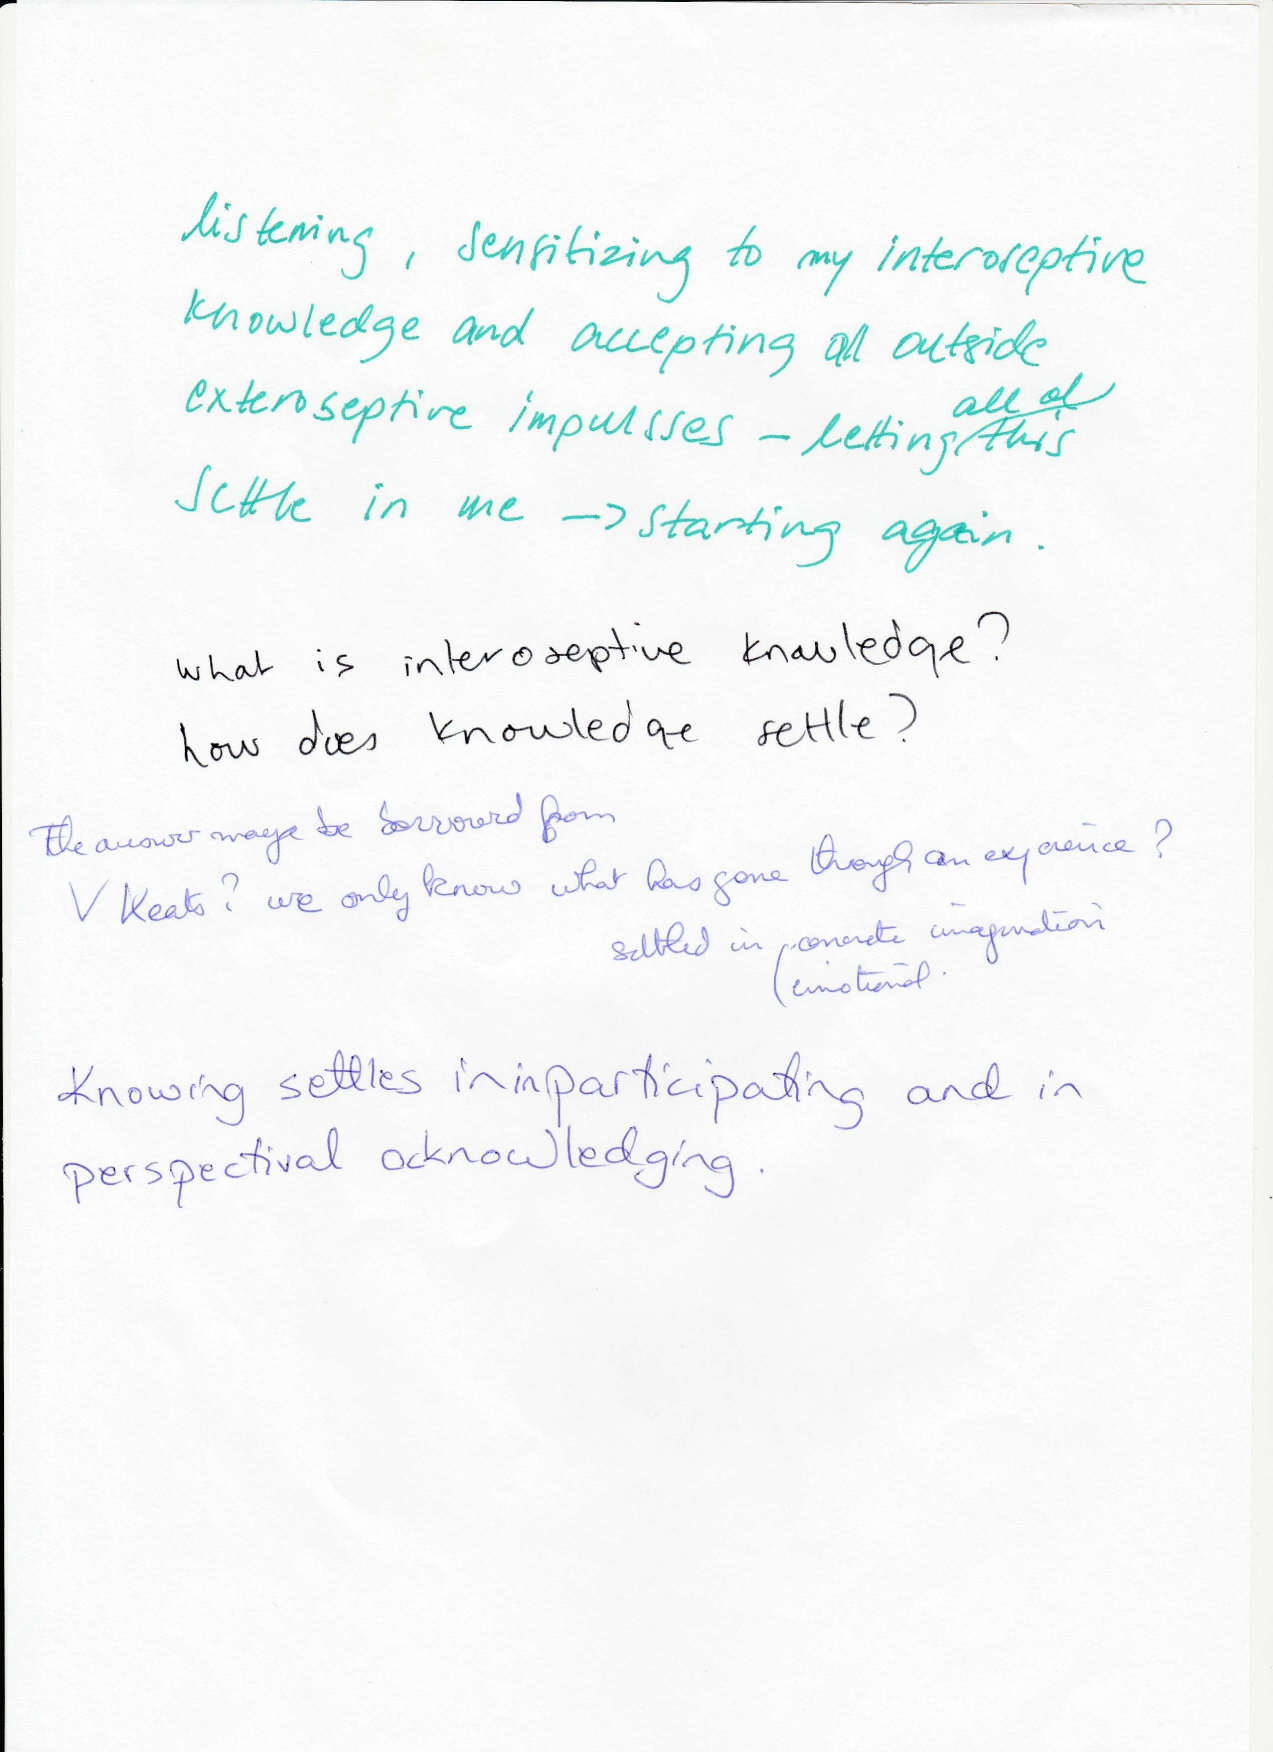 listening, sensitizing to my interoseptive
knowledge and accepting all outside
exteroseptive impulsses – letting all of this
settle in me –> starting again.
what is interoseptive knowledge?
how does knowledge settle?
The answer maye be borrowed from
V Keats? we only know what has gone through an experience?
settled in concrete imagination
(emotional.
Knowing settles in in participating and in
perspectival acknowledging.